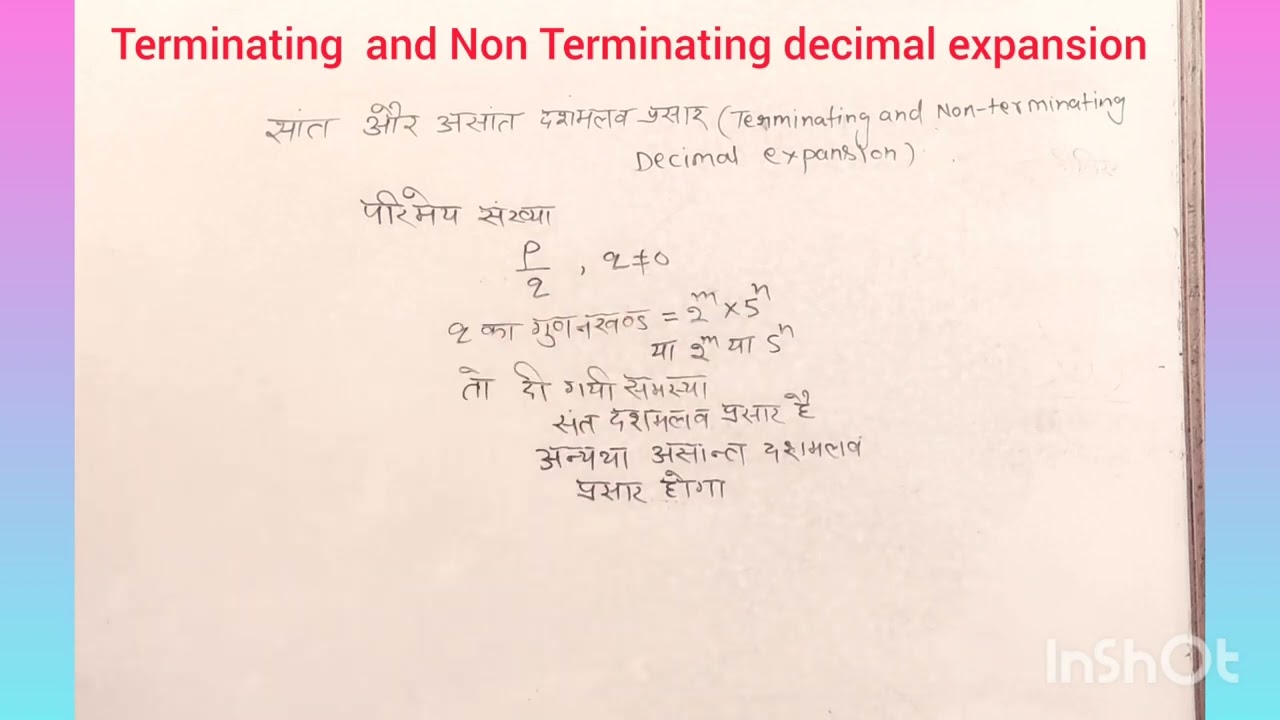 Terminating and Non Terminating decimal expansion
सांत और असांत दशमलव प्रसार (Terminating and Non-terminating
Decimal expansion)
परिमेय संख्या
p/q , q≠0
q का गुणनखण्ड = 2^m × 5^n
या 2^m या 5^n
तो दी गयी समस्या
संत दशमलव प्रसार है
अन्यथा असान्त दशमलव
प्रसार होगा
InShOt